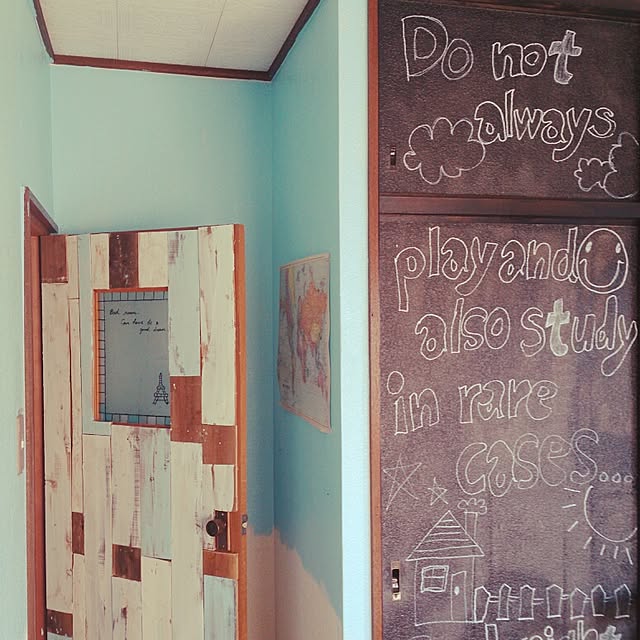 Do not
always
play and
also study
in rare
cases...
Bed room.
Can have to a
good dream